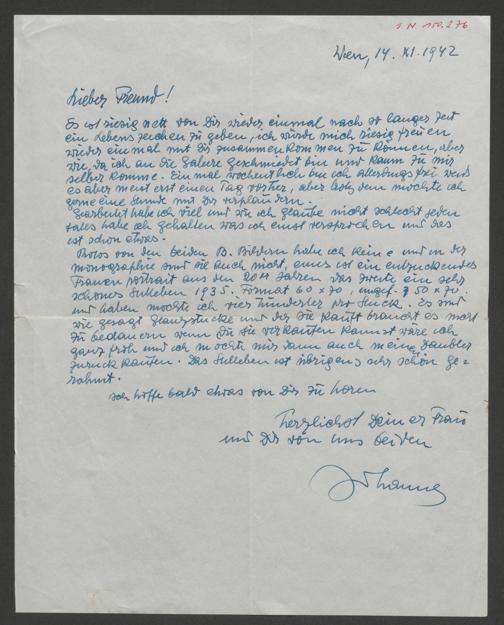 I N. 150.276
Wien, 14. XI. 1942
Lieber Freund!
Es ist riesig nett von Dir wieder einmal nach so langer Zeit
ein Lebenszeichen zu geben, ich würde mich riesig freuen
wieder einmal mit Dir zusammenkommen zu können, aber
wie, da ich an die Galeere geschmiedet bin und kaum zu mir
selber komme. Einmal wochentlich bin ich allerdings frei weiss
es aber meist erst einen Tag vorher, aber trotzdem möchte ich
gerne eine Stunde mit Dir verplaudern.
Gearbeitet habe ich viel und wie ich glaube nicht schlecht jeden
falls habe ich gehalten was ich einst versprochen und das
ist schon etwas.
Photos von den beiden B. Bildern habe ich keine und in der
monographie sind sie auch nicht, eines ist ein entzückendes
Frauenportrait aus den 20er Jahren das zweite ein sehr
schönes Stilleben 1935. Format 60 x 70, ungef. 50 x 70
und haben möchte ich vier Hunderter pro Stück. Es sind
wie gesagt Glanzstücke und der sie kauft braucht es nicht
zu bedauern wenn Du sie verkaufen kannst wäre ich
ganz froh und ich möchte mir dann auch meine
zurück kaufen. Das Stilleben ist übrigens sehr schön ge=
rahmt.
Ich hoffe bald etwas von Dir zu hören
Herzlichst Deiner Frau
und Dir von uns beiden